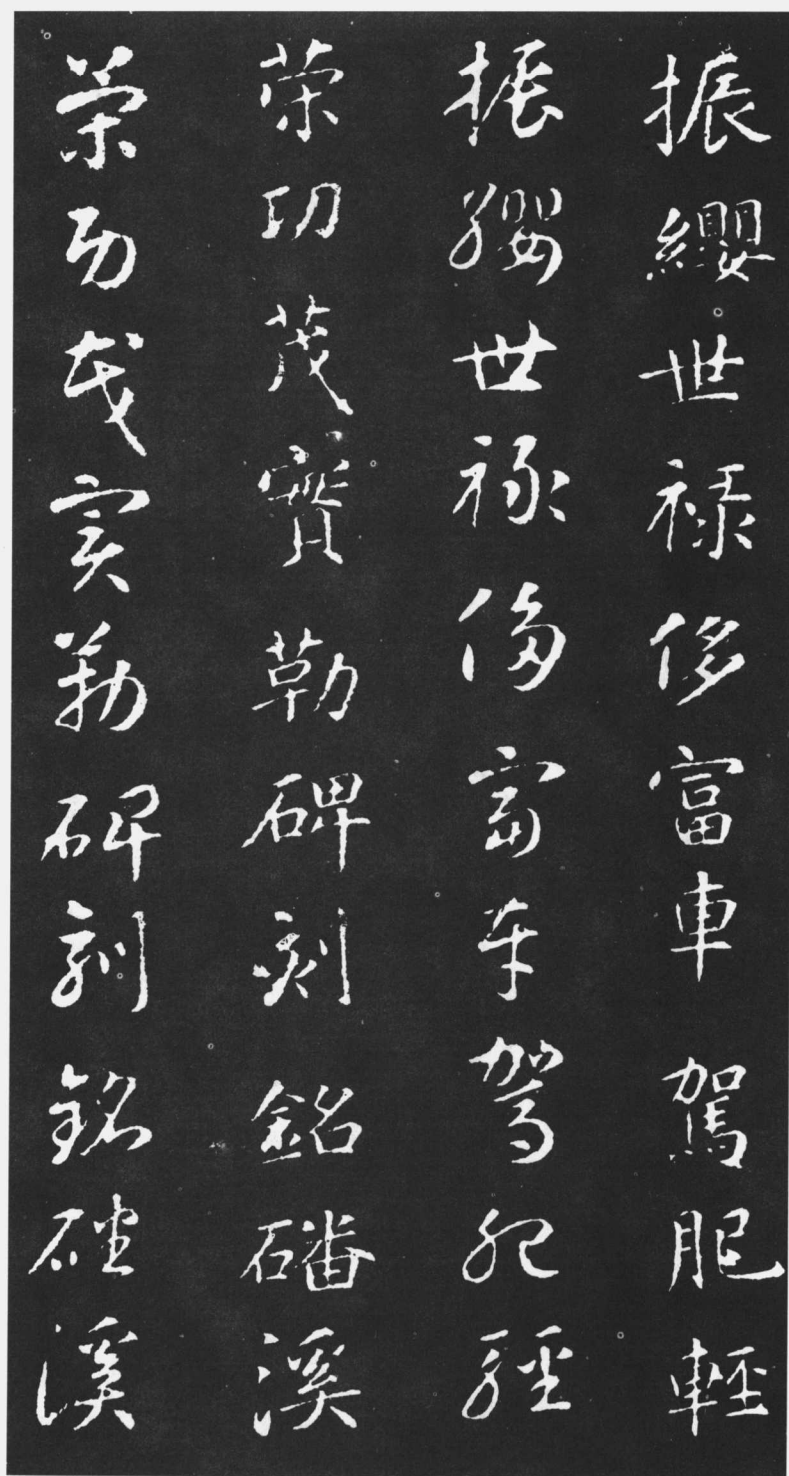 振纓世祿侈富車駕肥輕
振纓世祿侈富車駕肥輕
策功茂實勒碑刻銘磻溪
策功茂實勒碑刻銘磻溪